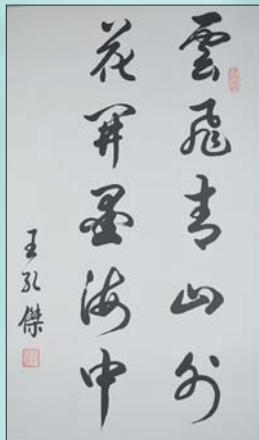 雲飛青山外
花開墨海中
王孔傑